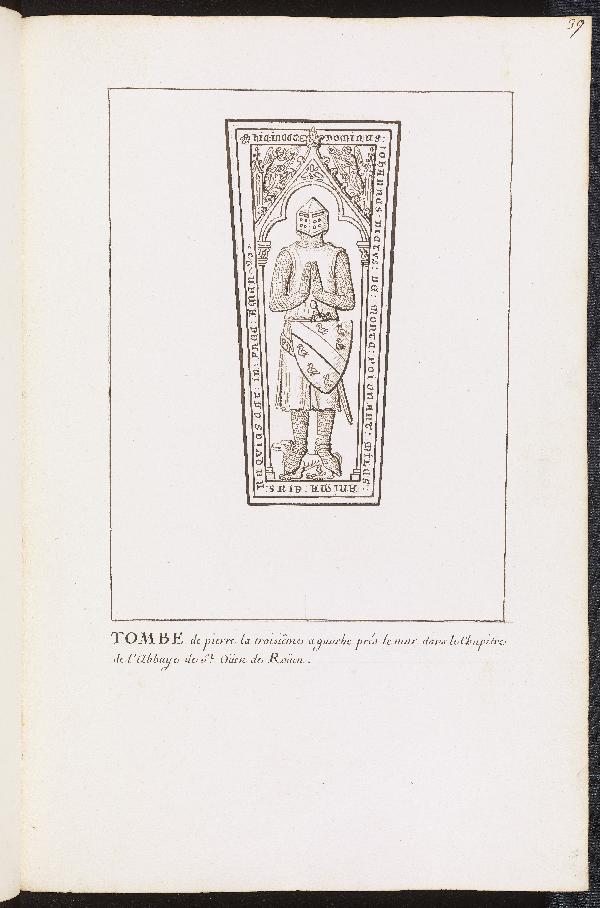 59
hic: iacet: dominus:
iohannes:
miles:
anima: eius:
requiescat: in: pace: amen
TOMBE de pierre la troisiéme a gauche prés le mur dans le Chapitre
de l'Abbaye de St. Oüen de Roüen.